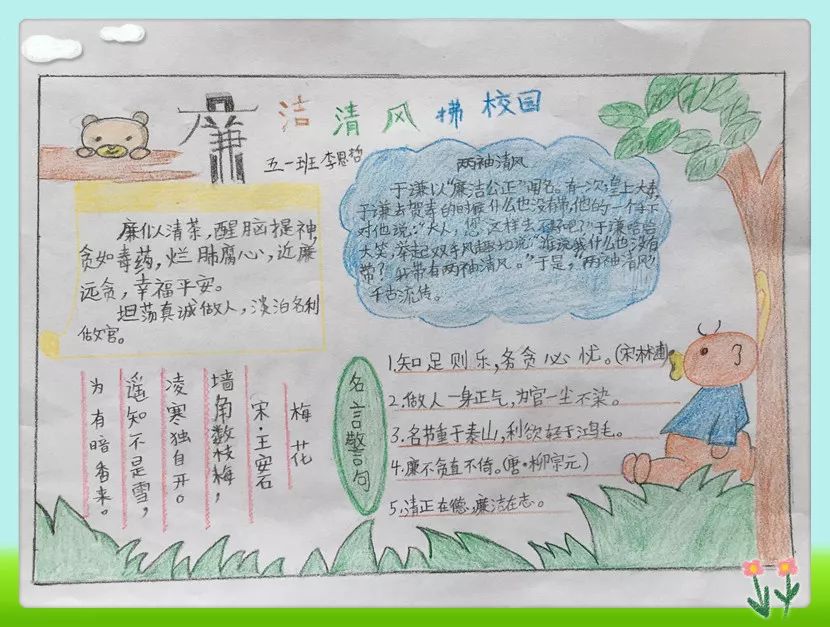 廉洁清风拂校园
五一班 李恩哲
廉似清茶，醒脑提神，
贪如毒药，烂肺腐心，近廉
远贪，幸福平安。
坦荡真诚做人，淡泊名利
做官。
两袖清风
于谦以“廉洁公正”闻名。有一次，皇上大寿，
于谦去贺寿的时候什么也没有带，他的一个手下
对他说：“大人，您这样去不好吧？”于谦哈哈
大笑，举起双手风趣地说“谁说我什么也没有
带？我带有两袖清风。”于是，“两袖清风”
千古流传。
梅花
宋·王安石
墙角数枝梅，
凌寒独自开。
遥知不是雪，
为有暗香来。
名言警句
1.知足则乐，务贪心忧。(宋·林逋)
2.做人一身正气，为官一尘不染。
3.名节重于泰山，利欲轻于鸿毛。
4.廉不贪直不倚。(唐·柳宗元)
5.清正在德，廉洁在志。